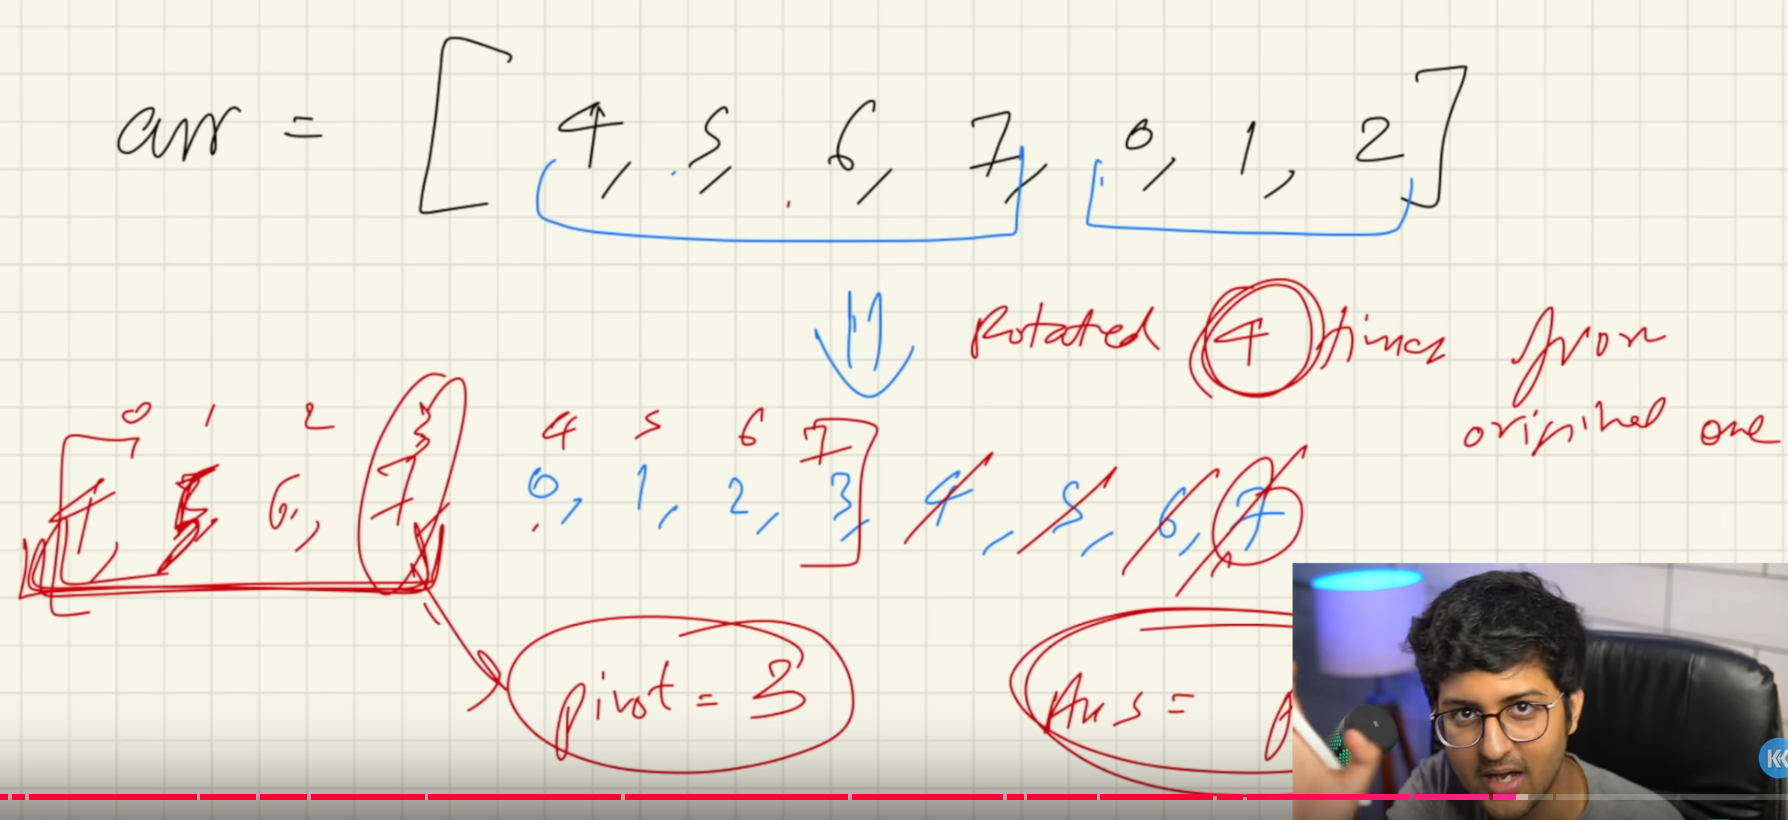 arr = [ 4, 5, 6, 7, 0, 1, 2 ]
Rotated 4 times from
original one
0 1 2 3 4 5 6 7
[ 4, 5, 6, 7, 0, 1, 2, 3 ] 4, 5, 6, 7
pivot = 3
Ans = p